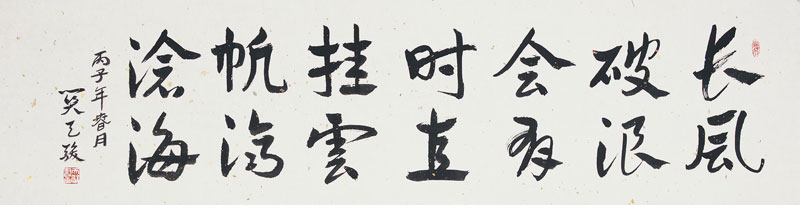 长风
破浪
会有
时直
挂雲
帆济
滄海
丙子年春月